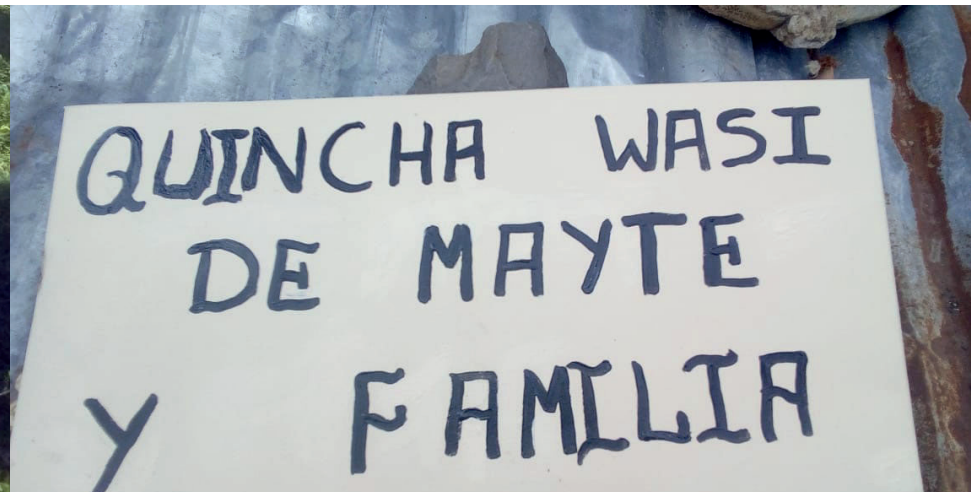 QUINCHA WASI
DE MAYTE
Y FAMILIA